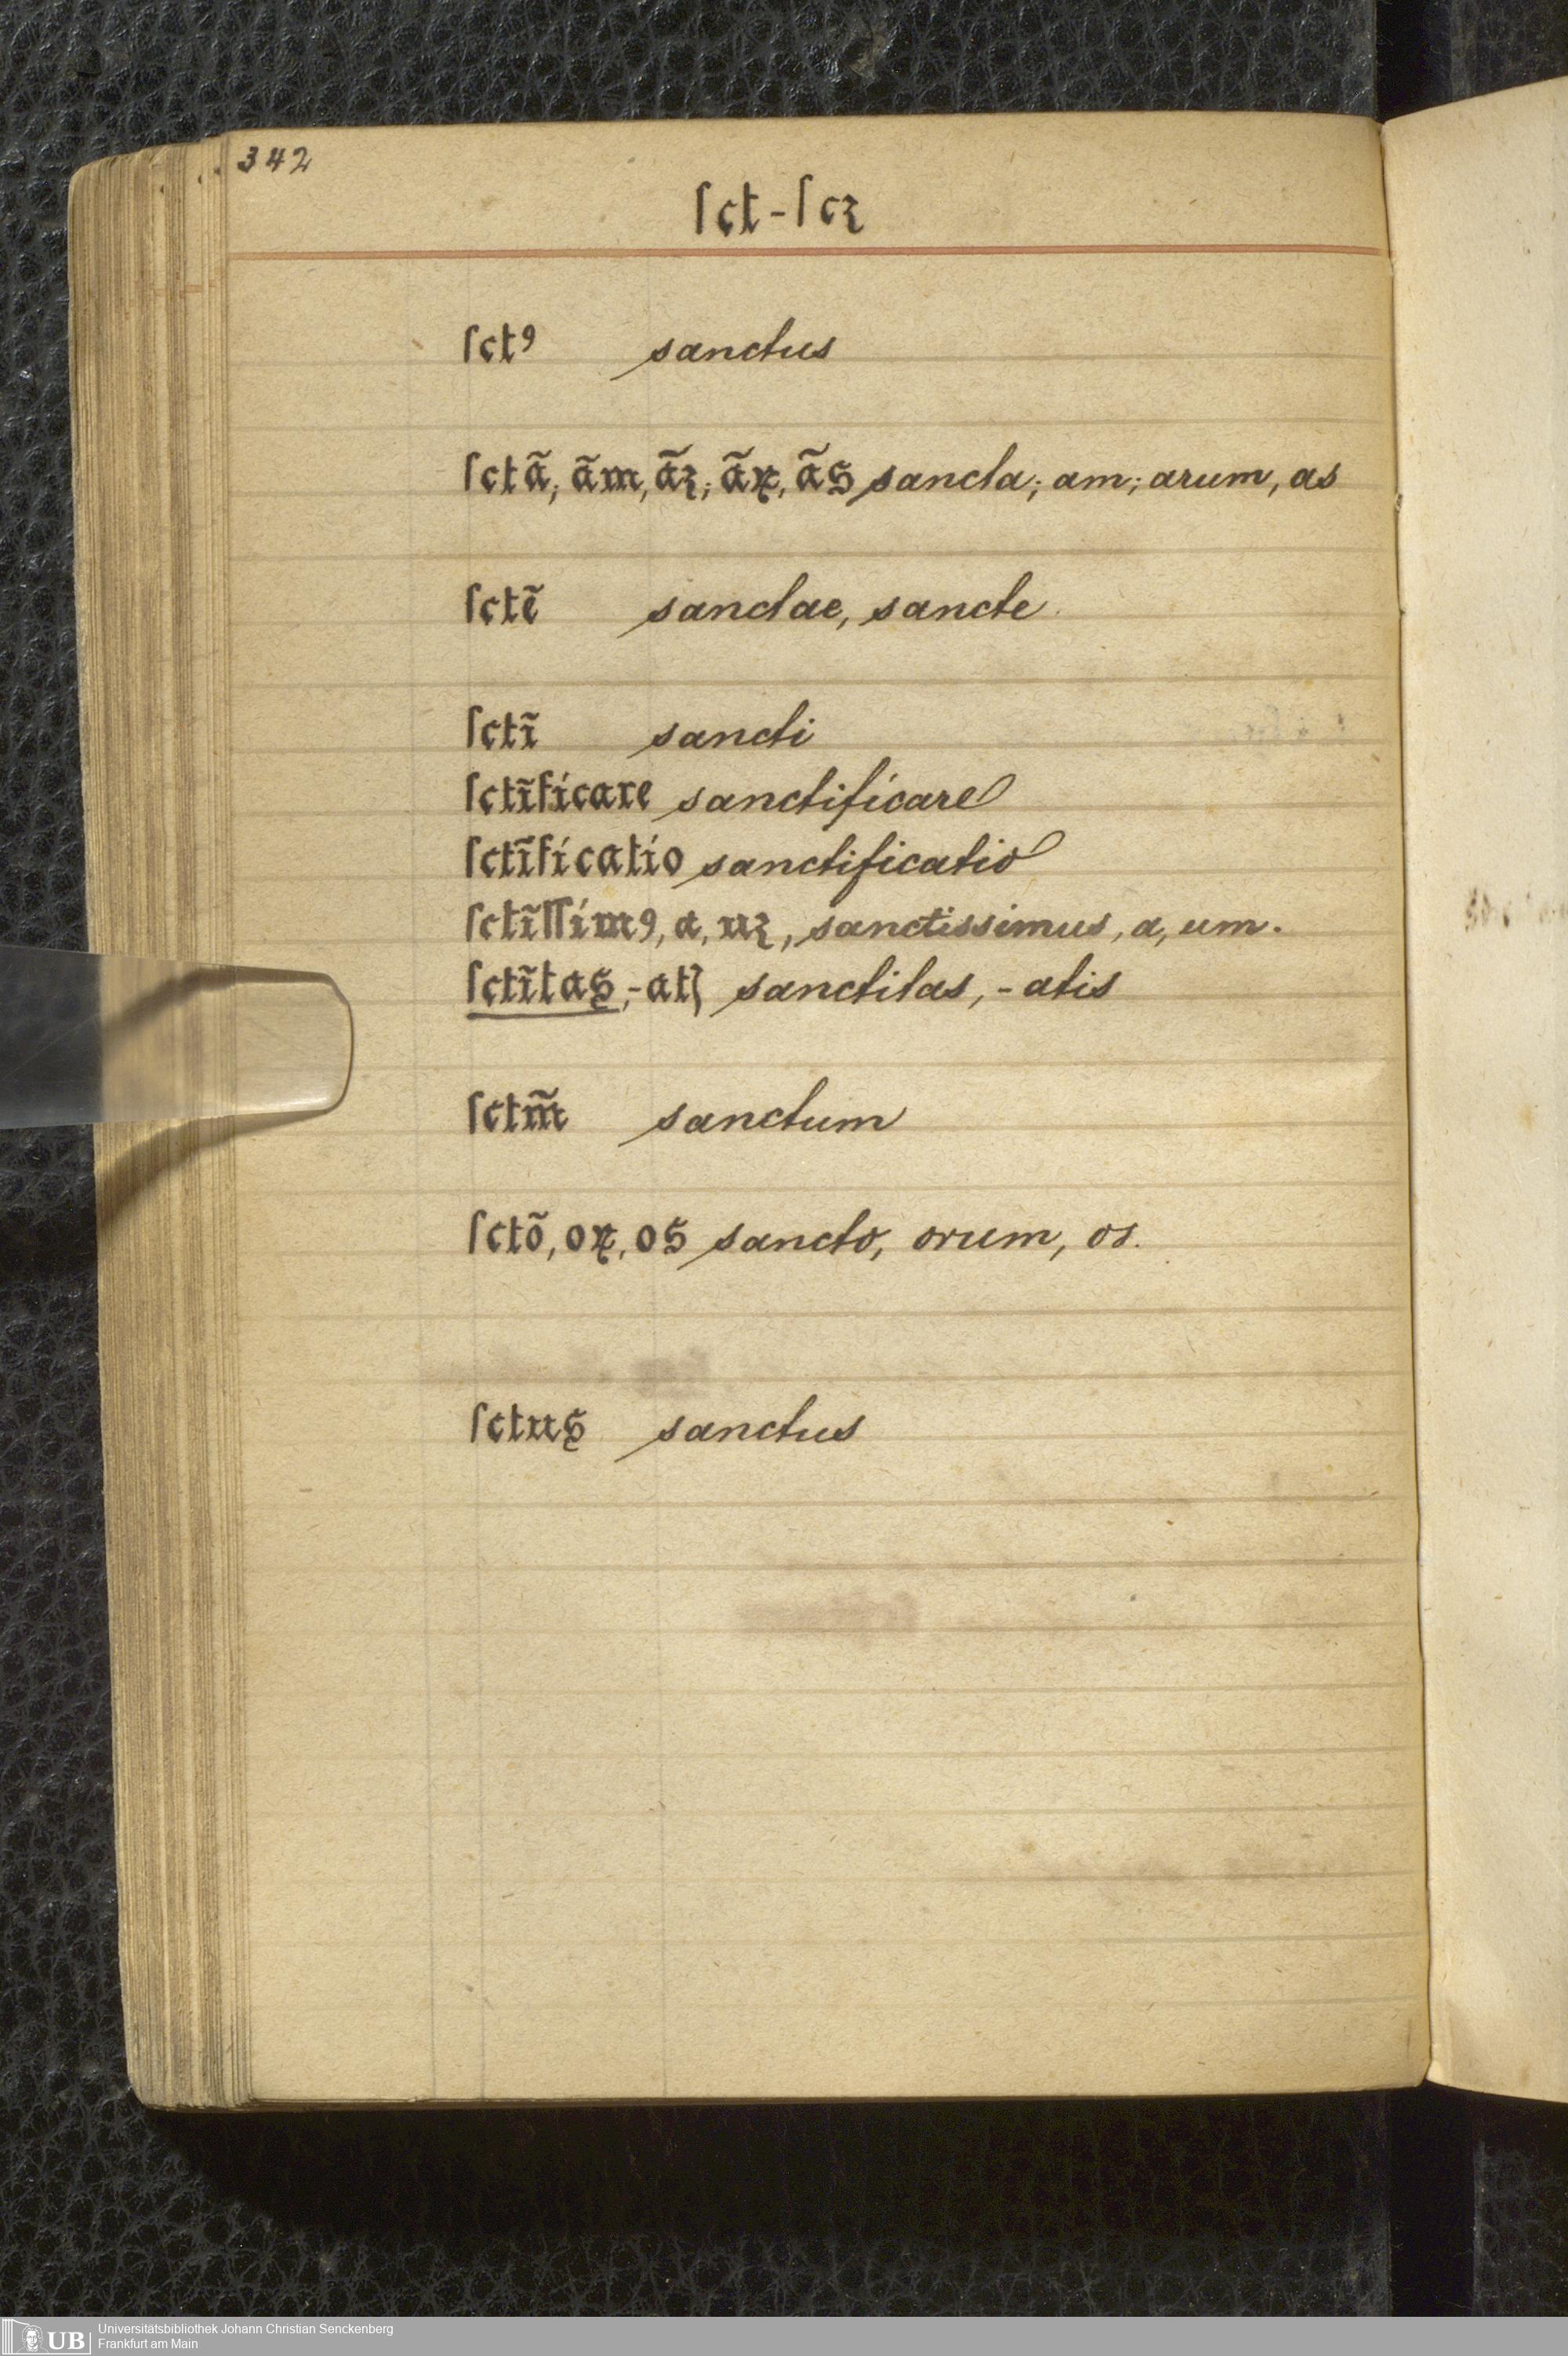 342
ſct-ſcꝫ
ſctꝰ sanctus
ſctã, ãm, ãꝫ; ãꝝ, ãs sancta; am; arum, as
ſctẽ sanctae, sancte.
ſctĩ sancti
ſctĩficare sanctificare
ſctĩficatio sanctificatio
ſctĩſſimꝰ, a, uꝫ, sanctissimus, a, um.
ſctĩtas, -atꝭ sanctitas, -atis
ſctm̃ sanctum
ſctõ, oꝝ, os sancto, orum, os.
ſctus sanctus
UB
Universitätsbibliothek Johann Christian Senckenberg
Frankfurt am Main